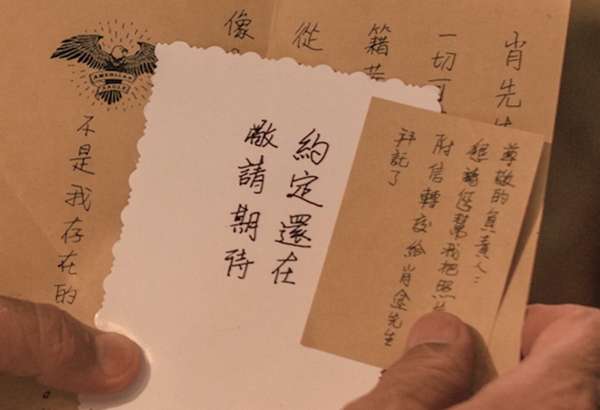 肖先
一切可
籍
從
像
不是我存在的
AMERICAN
EAGLE
約定還在
敬請期待
尊敬的負責人:
想請您幫我把照
附信轉交給肖先生
拜託了